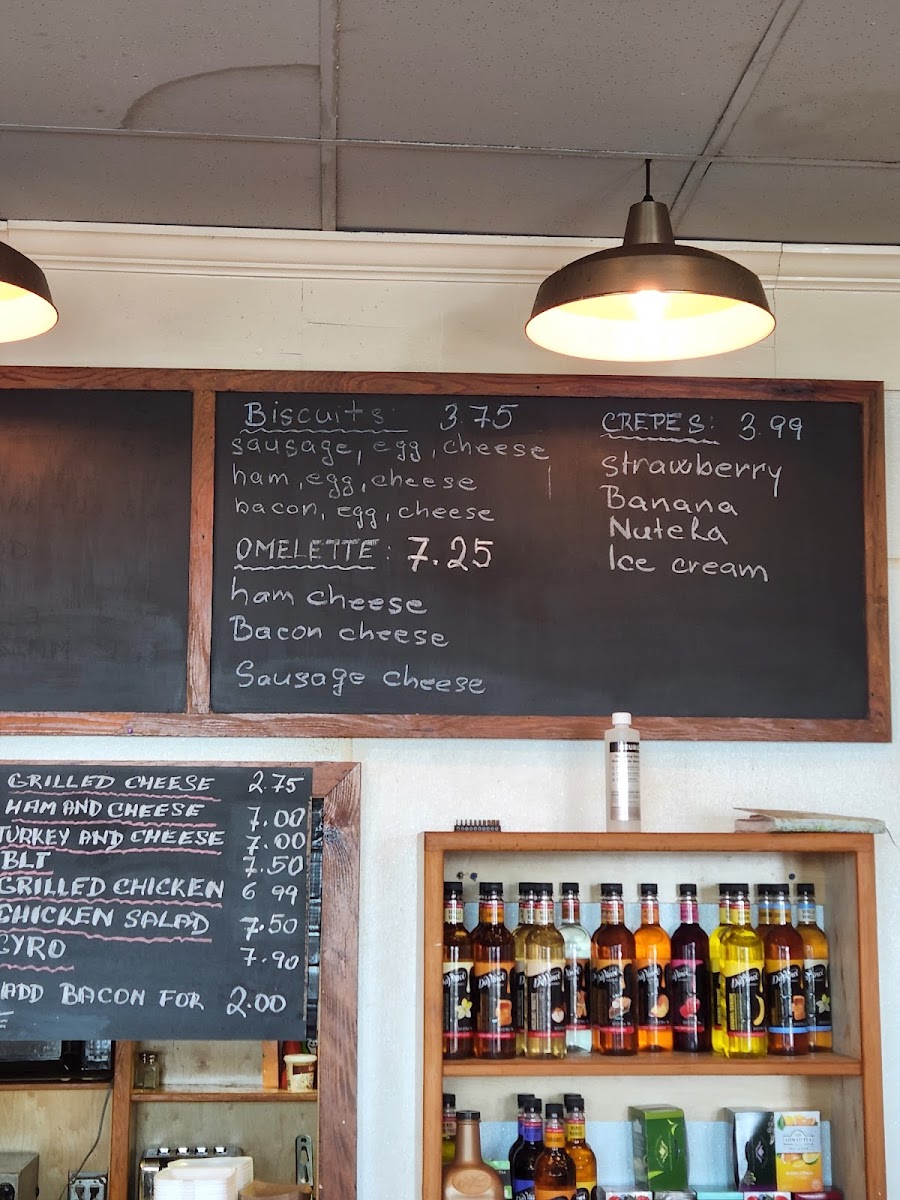 Biscuits: 3.75
sausage, egg, cheese
ham, egg, cheese
bacon, egg, cheese
OMELETTE: 7.25
ham cheese
Bacon cheese
Sausage cheese
CREPES: 3.99
strawberry
Banana
Nutella
Ice cream
GRILLED CHEESE 2.75
HAM AND CHEESE 7.00
TURKEY AND CHEESE 7.00
BLT 7.50
GRILLED CHICKEN 6 99
CHICKEN SALAD 7.50
GYRO 7.90
ADD BACON FOR 2.00
DaVinci
DaVinci
DaVinci
DaVinci